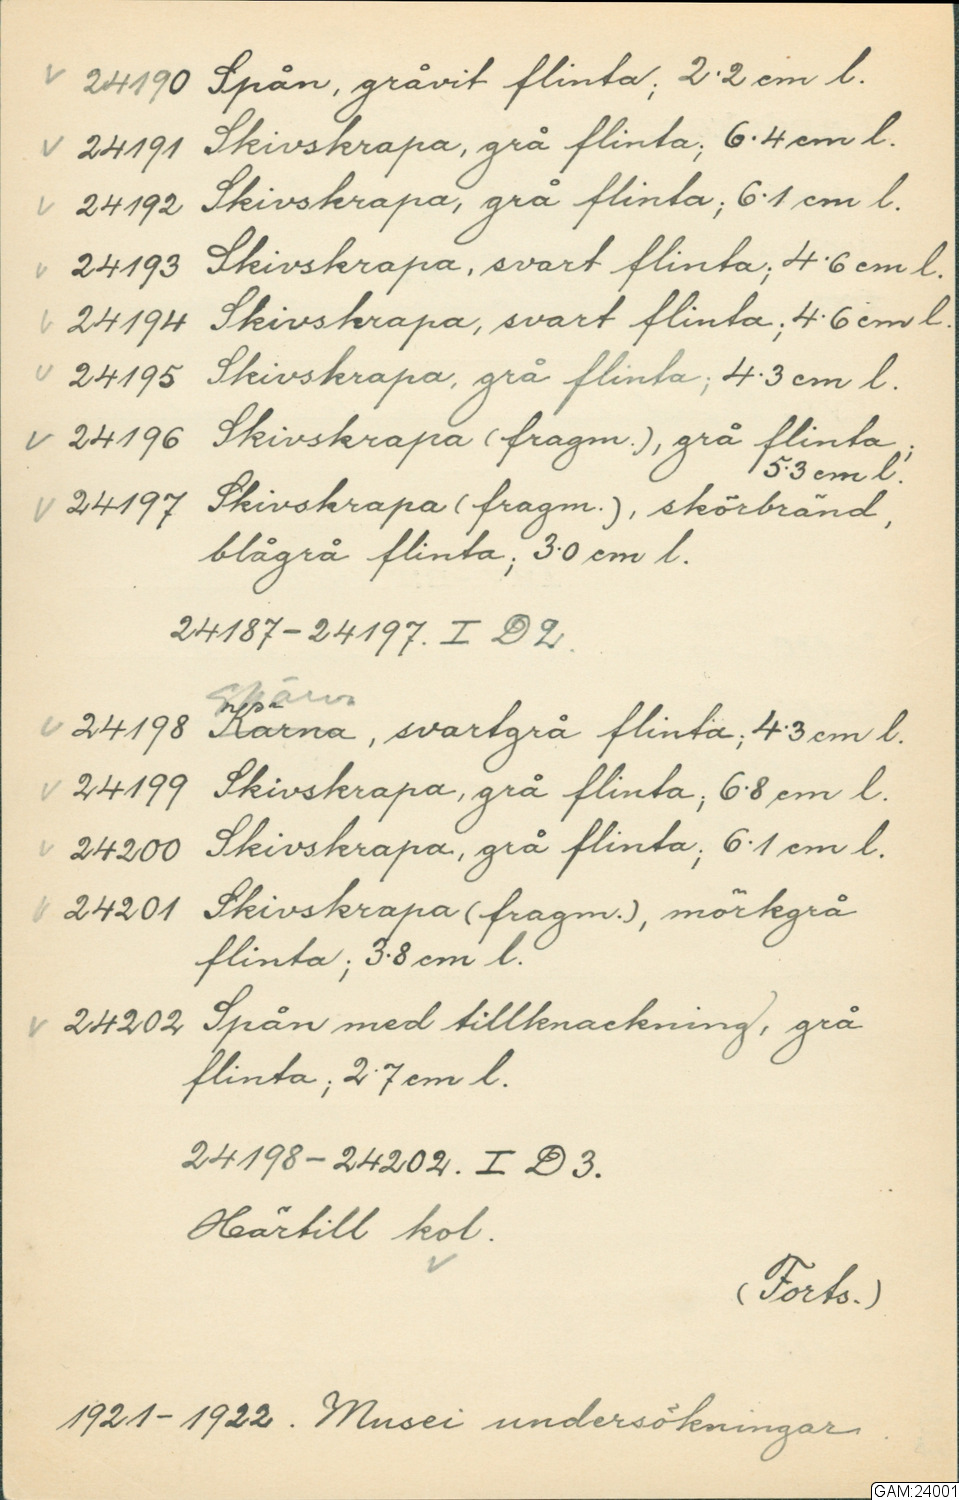 v 24190 Spån, gråvit flinta; 2.2 cm l.
v 24191 Skivskrapa, grå flinta; 6.4 cm l.
v 24192 Skivskrapa, grå flinta; 6.1 cm l.
v 24193 Skivskrapa, svart flinta; 4.6 cm l.
v 24194 Skivskrapa, svart flinta; 4.6 cm l.
v 24195 Skivskrapa, grå flinta; 4.3 cm l.
v 24196 Skivskrapa (fragm.), grå flinta;
5.3 cm l.
v 24197 Skivskrapa (fragm.), skörbränd,
blågrå flinta; 3.0 cm l.
24187-24197. I D2.
Skärv
v 24198 Kärna, svartgrå flinta; 4.3 cm l.
v 24199 Skivskrapa, grå flinta; 6.8 cm l.
v 24200 Skivskrapa, grå flinta; 6.1 cm l.
v 24201 Skivskrapa (fragm.), mörkgrå
flinta; 3.8 cm l.
v 24202 Spån med tillknackning, grå
flinta; 2.7 cm l.
24198-24202. I D3.
Härtill kol.
v
(Forts.)
1921-1922. Musei undersökningar.
GAM:24001